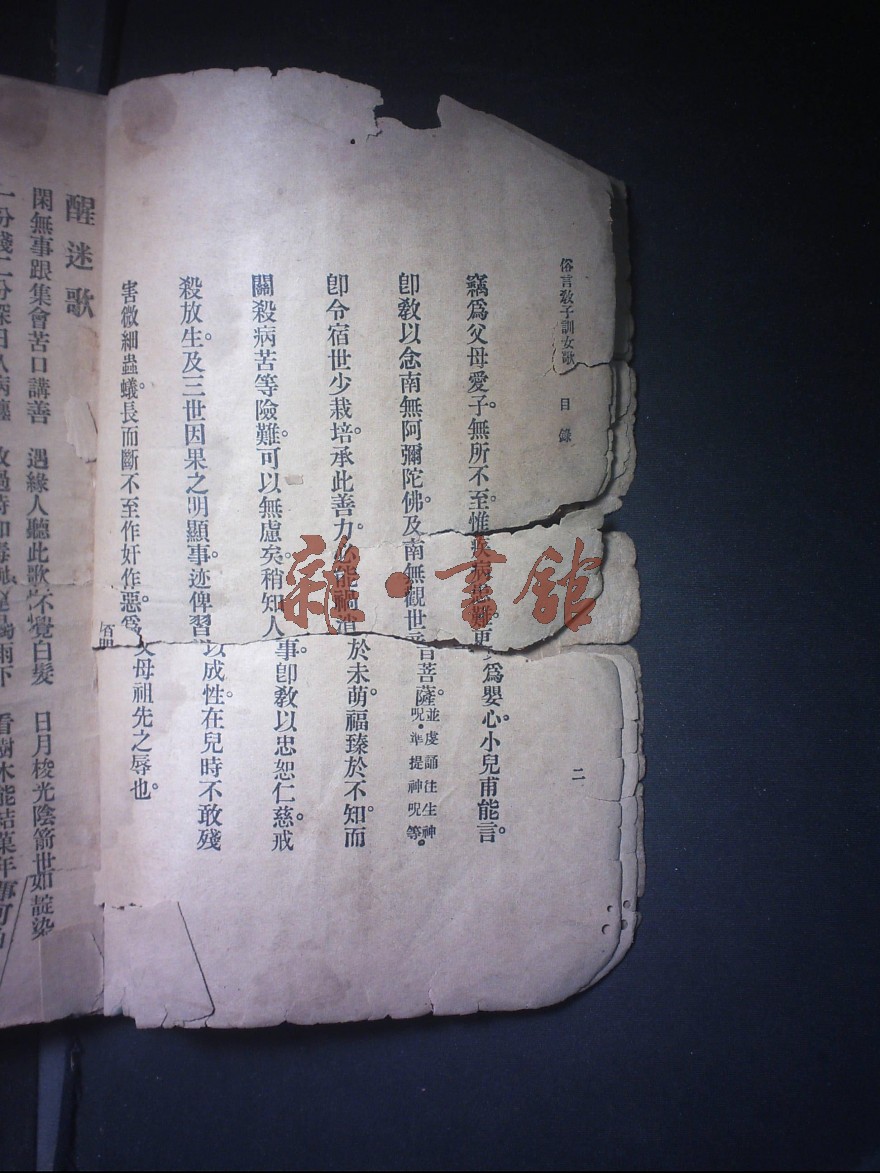 俗言教子訓女歌 目錄 二
竊爲父母愛子。無所不至。惟疾病患難。更爲嬰心。小兒甫能言。
卽教以念南無阿彌陀佛。及南無觀世音菩薩。並虔誦往生神咒。準提神咒等。
卽令宿世少栽培。承此善力。必能禍消於未萌。福臻於不知。而
關殺病苦等險難。可以無慮矣。稍知人事。卽教以忠恕仁慈。戒
殺放生。及三世因果之明顯事迹。俾習以成性。在兒時不敢殘
害微細蟲蟻。長而斷不至作奸作惡。爲父母祖先之辱也。
醒迷歌
閑無事跟集會苦口講善 遇緣人聽此歌不覺白髮 日月梭光陰箭世如靛染
雜·書館